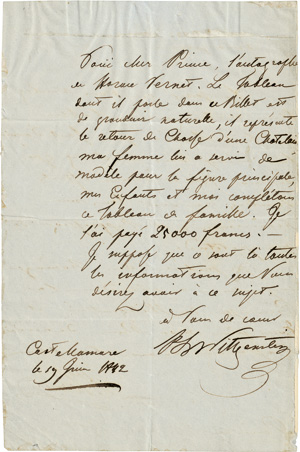 Voici cher Prince, l'autographe
de Horace Vernet. Le Tableau
dont il parle dans ce Billet est
de grandeur naturelle, il représente
le retour de Chasse d'une Chatelaine
ma femme lui a servi de
modèle pour la figure principale
mes Enfants et moi complétons
ce Tableau de famille. Je
l'ai payé 25000 francs —
Je suppose que ce sont là toutes
les informations que Vous
désirez avoir à ce sujet.
à Vous de cœur
Wittgenstein
Castellamare
le 19 Juin 1842